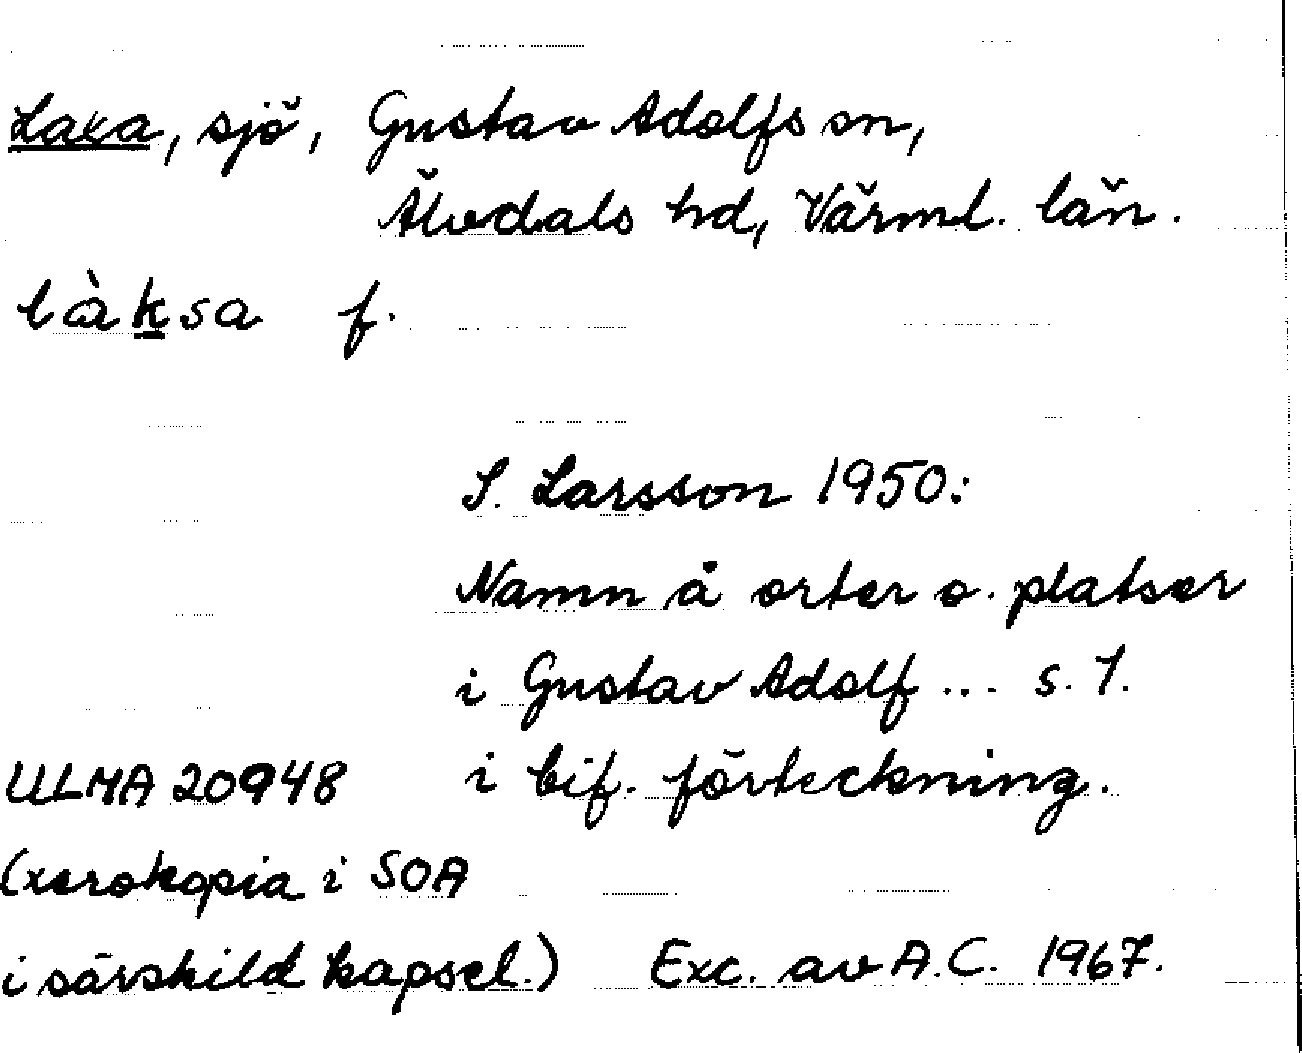 Laxa, sjö, Gustav Adolfs sn,
Älvdals hd, Värml. län.
làksa f.
S. Larsson 1950:
Namn å orter o. platser
i Gustav Adolf ... s. 1.
ULMA 20948 i bif. förteckning.
(xerokopia i SOA
i särskild kapsel.) Exc. av A.C. 1967.